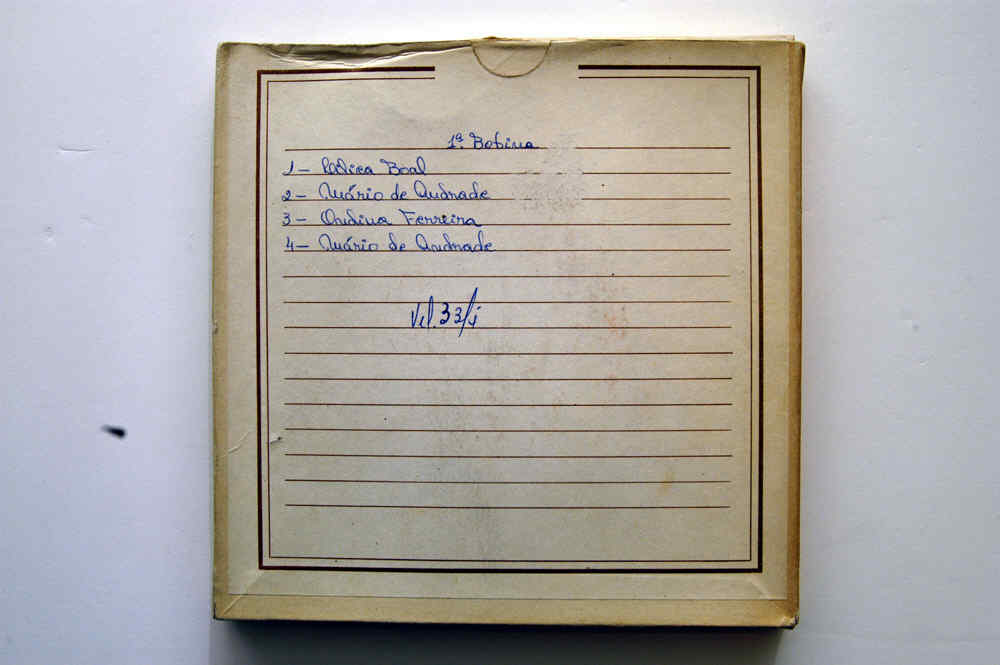 1ª. Bobina
1 - Lilica Boal
2 - Mário de Andrade
3 - Ondina Ferreira
4 - Mário de Andrade
Vel. 3 3/4